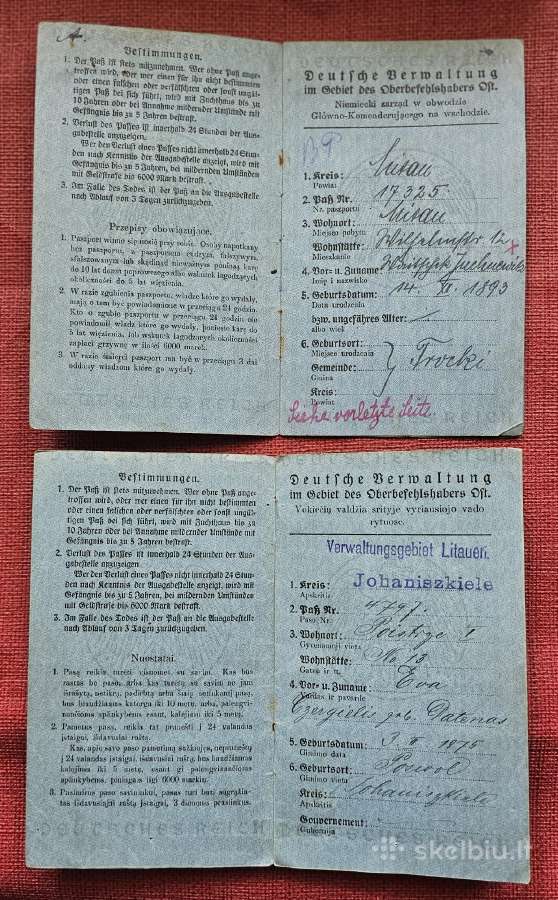 Bestimmungen.
1. Der Paß ist stets mitzunehmen. Wer ohne Paß ange-
troffen wird, oder wer einen für ihn nicht bestimmten
oder einen falschen oder verfälschten oder sonst ungül-
tigen Paß bei sich führt, wird mit Zuchthaus bis zu
10 Jahren oder bei Annahme mildernder Umstände mit
Gefängnis bis zu 5 Jahren bestraft.
2. Verlust des Passes ist innerhalb 24 Stunden der Aus-
gabestelle anzuzeigen.
Wer den Verlust eines Passes nicht innerhalb 24 Stun-
den nach Kenntnis der Ausgabestelle anzeigt, wird mit
Gefängnis bis zu 5 Jahren, bei mildernden Umständen
mit Geldstrafe bis 6000 Mark bestraft.
3. Im Falle des Todes ist der Paß an die Ausgabestelle
nach Ablauf von 3 Tagen zurückzugeben.
Przepisy obowiązujące.
1. Paszport winno się nosić przy sobie. Osoby napotkane
bez paszportu, z paszportem cudzym, fałszywym,
sfałszowanym lub skądinąd nieważnym poniosą karę
do 10 lat domu poprawczego albo wskutek łagodzących
okoliczności do 5 lat więzienia.
2. W razie zgubienia paszportu, władze które go wydały,
mają o tem być powiadomione w przeciągu 24 godzin.
Kto o zgubie paszportu w przeciągu 24 godzin nie
powiadomił władz które go wydały, poniesie karę do
5 lat więzienia, lub wskutek łagodzących okoliczności
zapłaci grzywnę w ilości 6000 marek.
3. W razie śmierci paszport ma być w przeciągu 3 dni
oddany władzom które go wydały.
Deutsche Verwaltung
im Gebiet des Oberbefehlshabers Ost.
Niemiecki zarząd w obwodzie
Główno-Komenderującego na wschodzie.
1. Kreis: Mitau
Powiat
2. Paß Nr. 17325
Nr. paszportu
3. Wohnort: Mitau
Miejsce pobytu
Wohnstätte: Wilhelmstr. 12
Mieszkanie
4. Vor- u. Zuname:
Imię i nazwisko
5. Geburtsdatum: 14. 1893
Data urodzenia
bzw. ungefähres Alter:
albo wiek
6. Geburtsort:
Miejsce urodzenia
Gemeinde: Trocki
Gmina
Kreis:
Powiat
Siehe vorletzte Seite
Bestimmungen.
1. Der Paß ist stets mitzunehmen. Wer ohne Paß ange-
troffen wird, oder wer einen für ihn nicht bestimmten
oder einen falschen oder verfälschten oder sonst ungül-
tigen Paß bei sich führt, wird mit Zuchthaus bis zu
10 Jahren oder bei Annahme mildernder Umstände mit
Gefängnis bis zu 5 Jahren bestraft.
2. Verlust des Passes ist innerhalb 24 Stunden der Aus-
gabestelle anzuzeigen.
Wer den Verlust eines Passes nicht innerhalb 24 Stun-
den nach Kenntnis der Ausgabestelle anzeigt, wird mit
Gefängnis bis zu 5 Jahren, bei mildernden Umständen
mit Geldstrafe bis zu 6000 Mark bestraft.
3. Im Falle des Todes ist der Paß an die Ausgabestelle
nach Ablauf von 3 Tagen zurückzugeben.
Nuostatai.
1. Pasą reikia turėti visuomet su savim. Kas bus
rastas be paso, arba kas turėtų su savim no jam
išrašytą, netikrą, padirbtą arba šiaip netinkantį pasą,
bus baudžiamas katorga iki 10 metų, arba, palengvi-
nančioms apinkybėms esant, kalėjimu iki 5 metų.
2. Pametus pasą, reikia tat pranešti į 24 valandas
įstaigai, išdavusiai raštą.
Kas, apie savo paso pametimą sužinojęs, nepraneštų
į 24 valandas įstaigai, išdavusiai raštą, bus baudžiamas
kalėjimu iki 5 metų, esant gi palengvinančioms
apinkybėms, pinigais ligi 6000 markių.
3. Pasimirus paso savininkui, pasas turi būti sugrąžin-
tas išdavusiajai raštą įstaigai, 3 dienoms praslinkus.
Deutsche Verwaltung
im Gebiet des Oberbefehlshabers Ost.
Vokiečių valdžia srityje vyriausiojo vado
rytuose.
Verwaltungsgebiet Litauen.
1. Kreis: Johaniszkiele
Apskritis
2. Paß Nr. 4797.
Paso Nr.
3. Wohnort:
Gyvenamoji vieta
Wohnstätte: No 13
Gatvė ir tt.
4. Vor- u. Zuname: Eva
Vardas ir pavardė
5. Geburtsdatum: 3. 1875
Gimimo data
6. Geburtsort: Powol
Gimimo vieta
Kreis: Johaniszkiele
Apskritis
Gouvernement:
Gubernija
DEUTSCHES REICH
skelbiu.lt